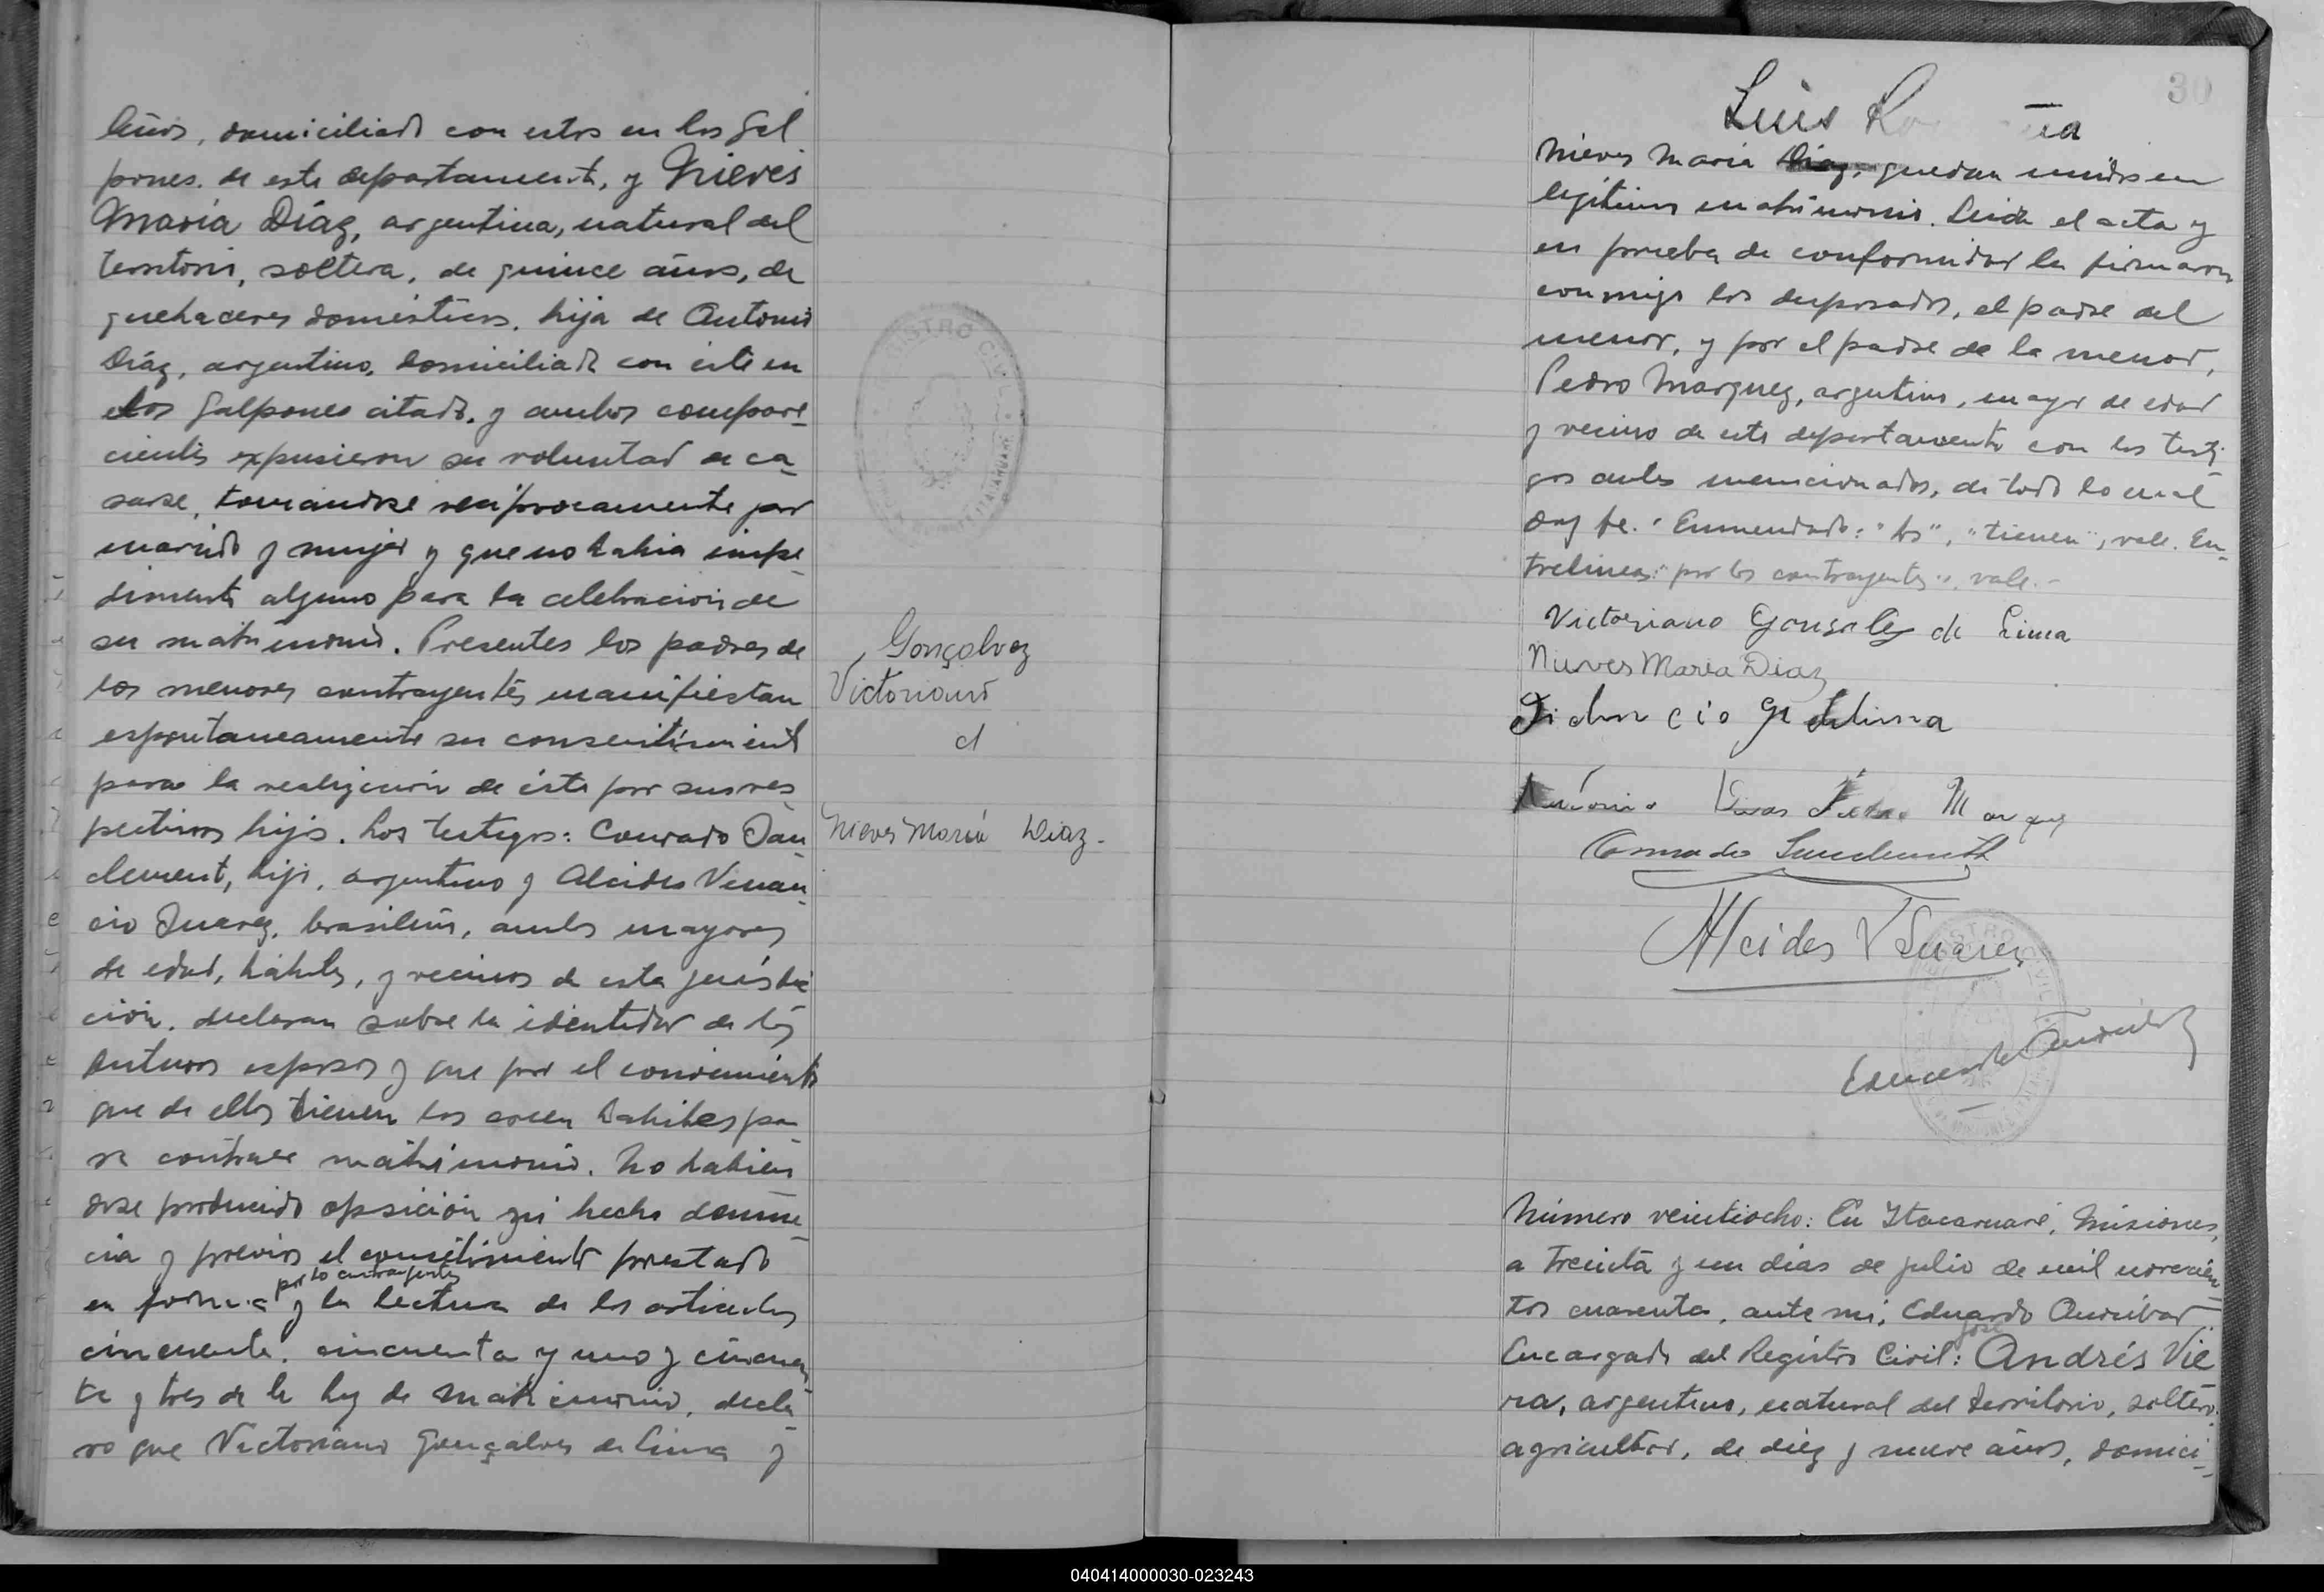 leños, domiciliado con estos en los Gal
pones. de este departamento, y Nieves
María Díaz, argentina, natural del
territorio, soltera, de quince años, de
quehaceres domésticos, hija de Antonio
Díaz, argentino, domiciliada con éste en
los Galpones citado, y ambos compare_
cientes expusieron su voluntad de ca_
sarse, tomandose reciprocamente por
marido y mujer y que no habia impe_
dimento alguno para la celebracion de
su matrimonio. Presentes los padres de
los menores contrayentes manifiestan
espontaneamente su consentimiento
para la realización de éste por sus res_
pectivos hijos. Los testigos: Conrado San_
clement, hijo, argentino y Alcides Venan_
cio Suarez, brasileño, ambos mayores
de edad, hábiles, y vecinos de esta jurisdic
ción, declaran sobre la identidad de los
futuros esposos y que por el conocimiento
que de ellos tienen los creen habiles pa_
ra contraer matrimonio. No habien
dose producido oposición ni hecho denun
cia y previos el consentimiento prestado
por los contrayentes
en forma y la lectura de los articulos
cincuenta, cincuenta y uno y cincuen_
ta y tres de la ley de matrimonio, decla
ro que Victoriano Gonçalves de Lima y
REGISTRO CIVIL
Gonçalvez
Victoriano
Nieves María Diaz-
30
Luis
Nieves Maria Diaz, quedan unidos en
legítimo matrimonio. Leida el acta y
en prueba de conformidad la firmaron
conmigo los desposados, el padre del
menor, y por el padre de la menor,
Pedro Marquez, argentino, mayor de edad
y vecino de este departamento con los testi_
gos antes mencionados, de todo lo cual
doy fe. Enmendado: "los", "tienen", vale. En_
trelineas: "por los contrayentes", vale.-
Victoriano Gonsales de Lima
Nieves Maria Diaz
Antonio Marquez
Conrado Sanclement
Alcides V Suarez
REGISTRO CIVIL
Eduardo
Número veintiocho: En Itacaruaré, Misiones,
a treinta y un dias de julio de mil novecien_
tos cuarenta, ante mi, Eduardo
José
Encargado del Registro Civil: Andrés Vie
ra, argentino, natural del territorio, soltero,
agricultor, de diez y nueve años, domici_
040414000030-023243